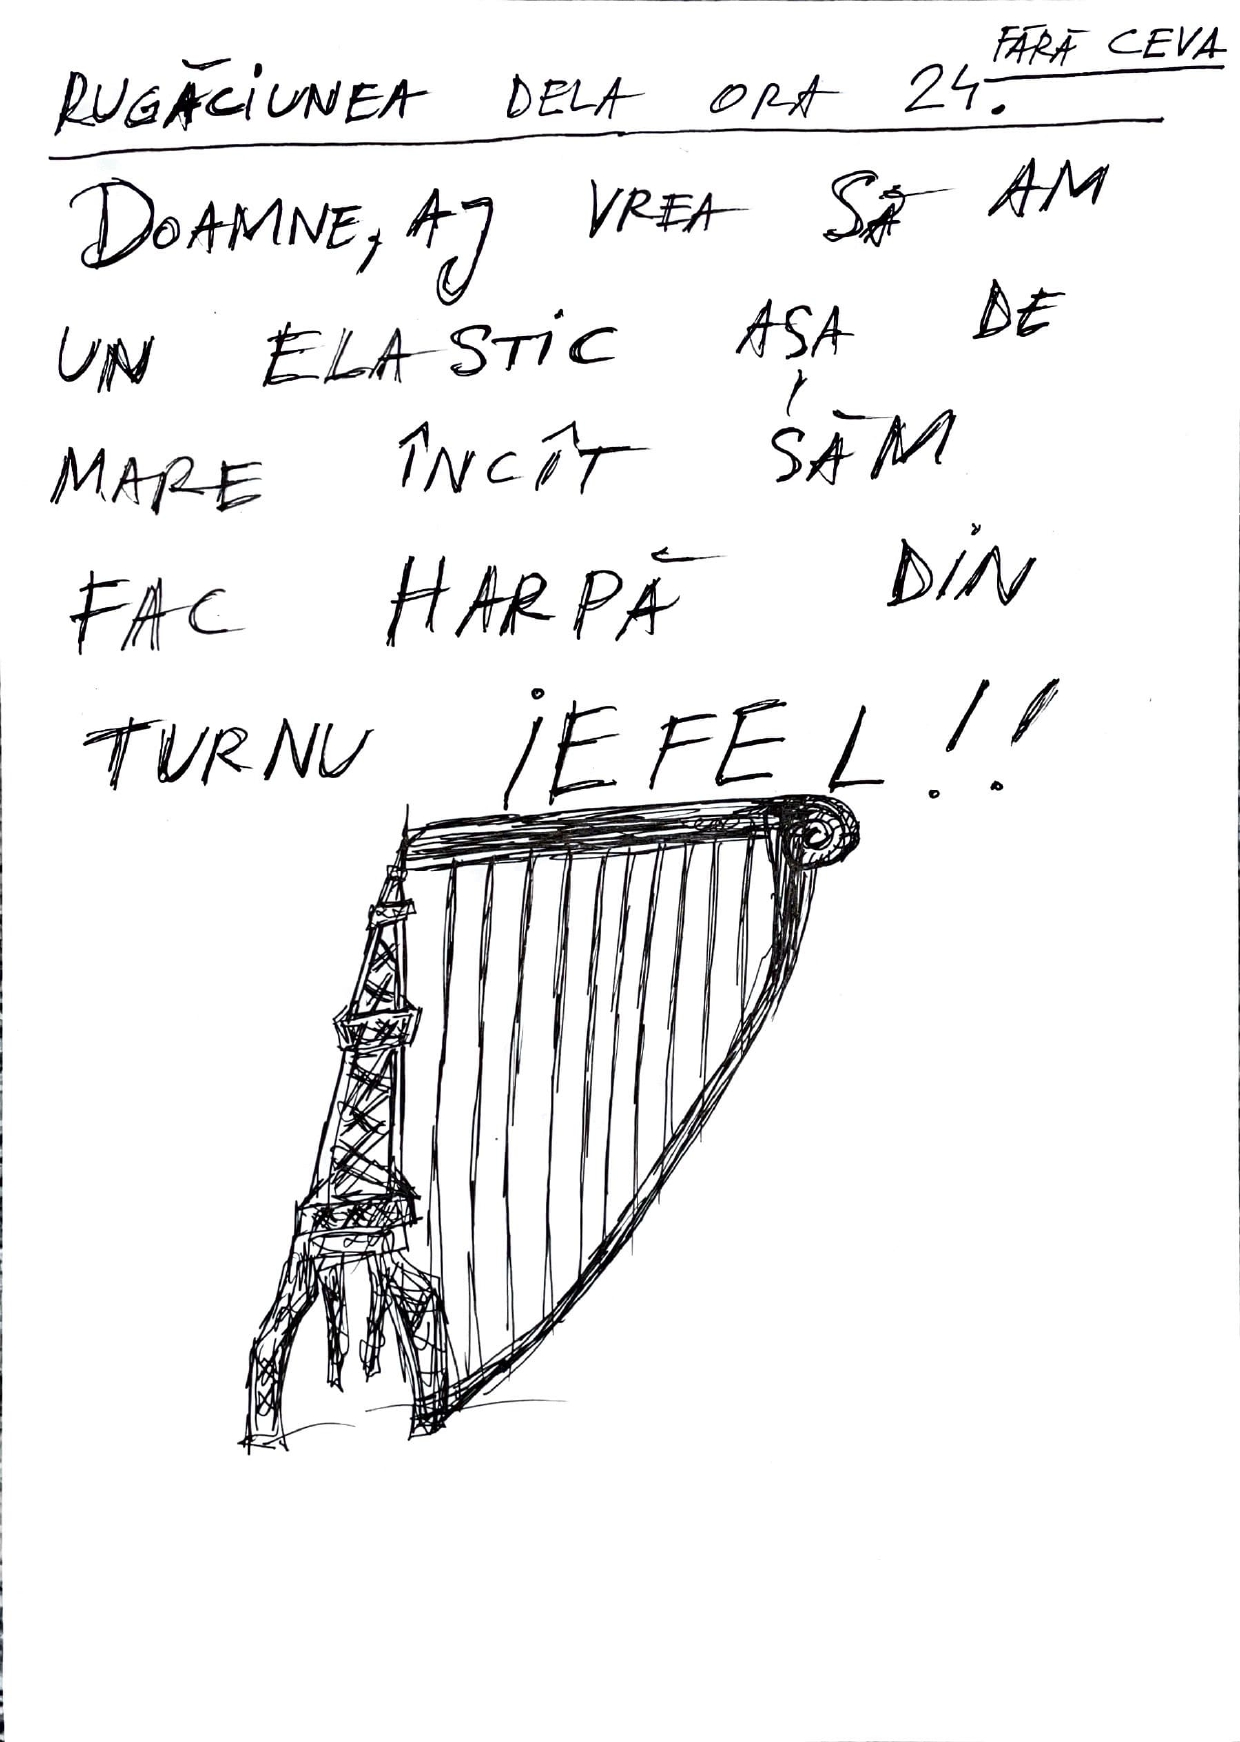 RUGĂCIUNEA DELA ORA 24. FĂRĂ CEVA
DOAMNE, AJ VREA SĂ AM
UN ELASTIC AȘA DE
MARE ÎNCÎT SĂM
FAC HARPĂ DIN
TURNU IEFEL!!